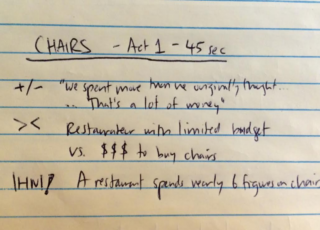 CHAIRS - Act 1 - 45 sec
+/- "We spent more than we originally thought...
... That's a lot of money"
>< Restaurateur with limited budget
vs. $$$ to buy chairs
IHNI! A restaurant spends nearly 6 figures on chairs